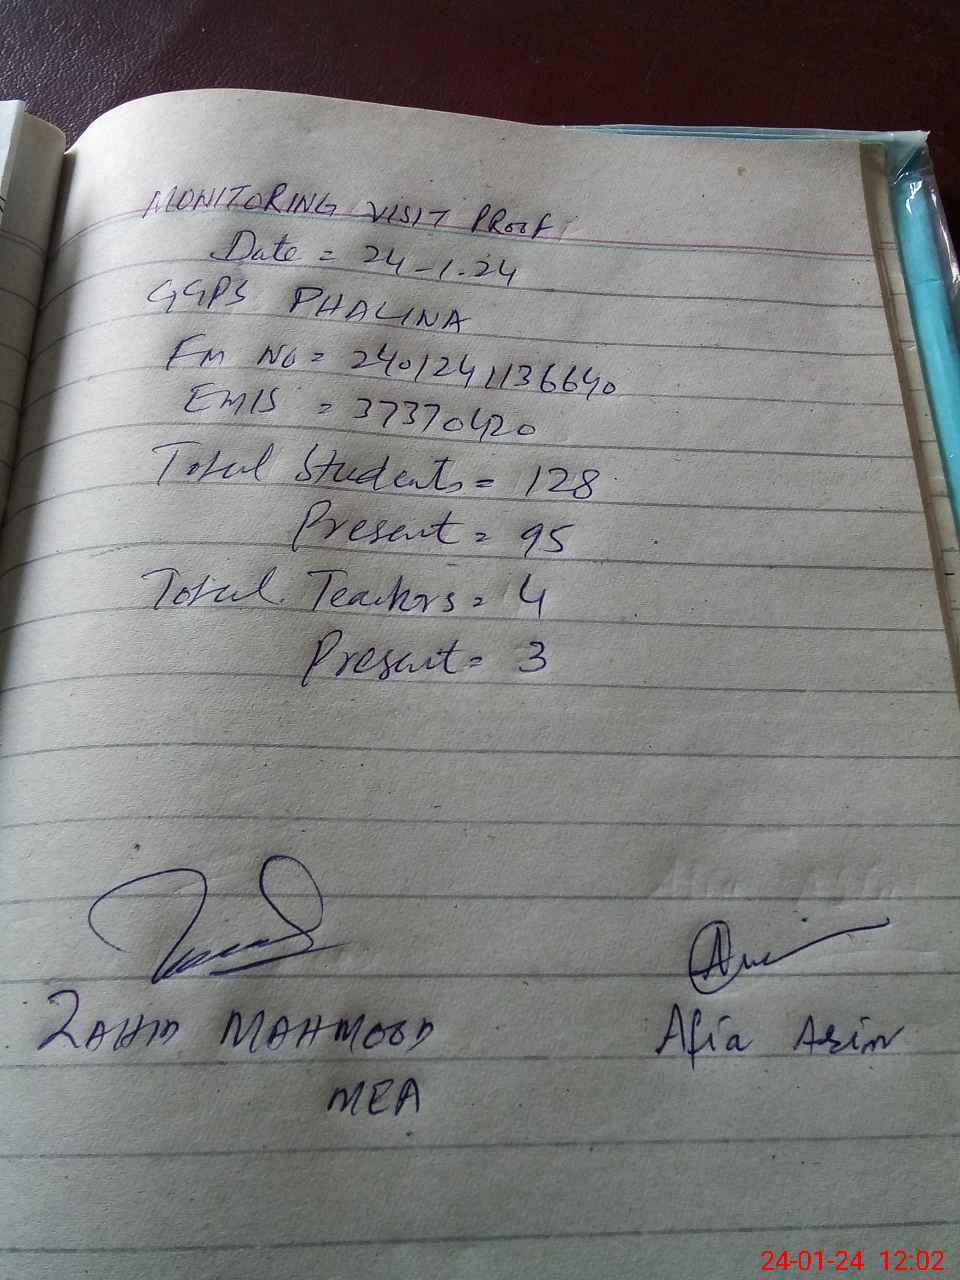 MONITORING VISIT PROOF
Date = 24-1.24
GGPS PHALINA
FM NO = 2401241136640
EMIS = 37370420
Total Students = 128
Present = 95
Total Teachers = 4
Present = 3
ZAHID MAHMOOD
MEA
Afia Asim
24-01-24 12:02